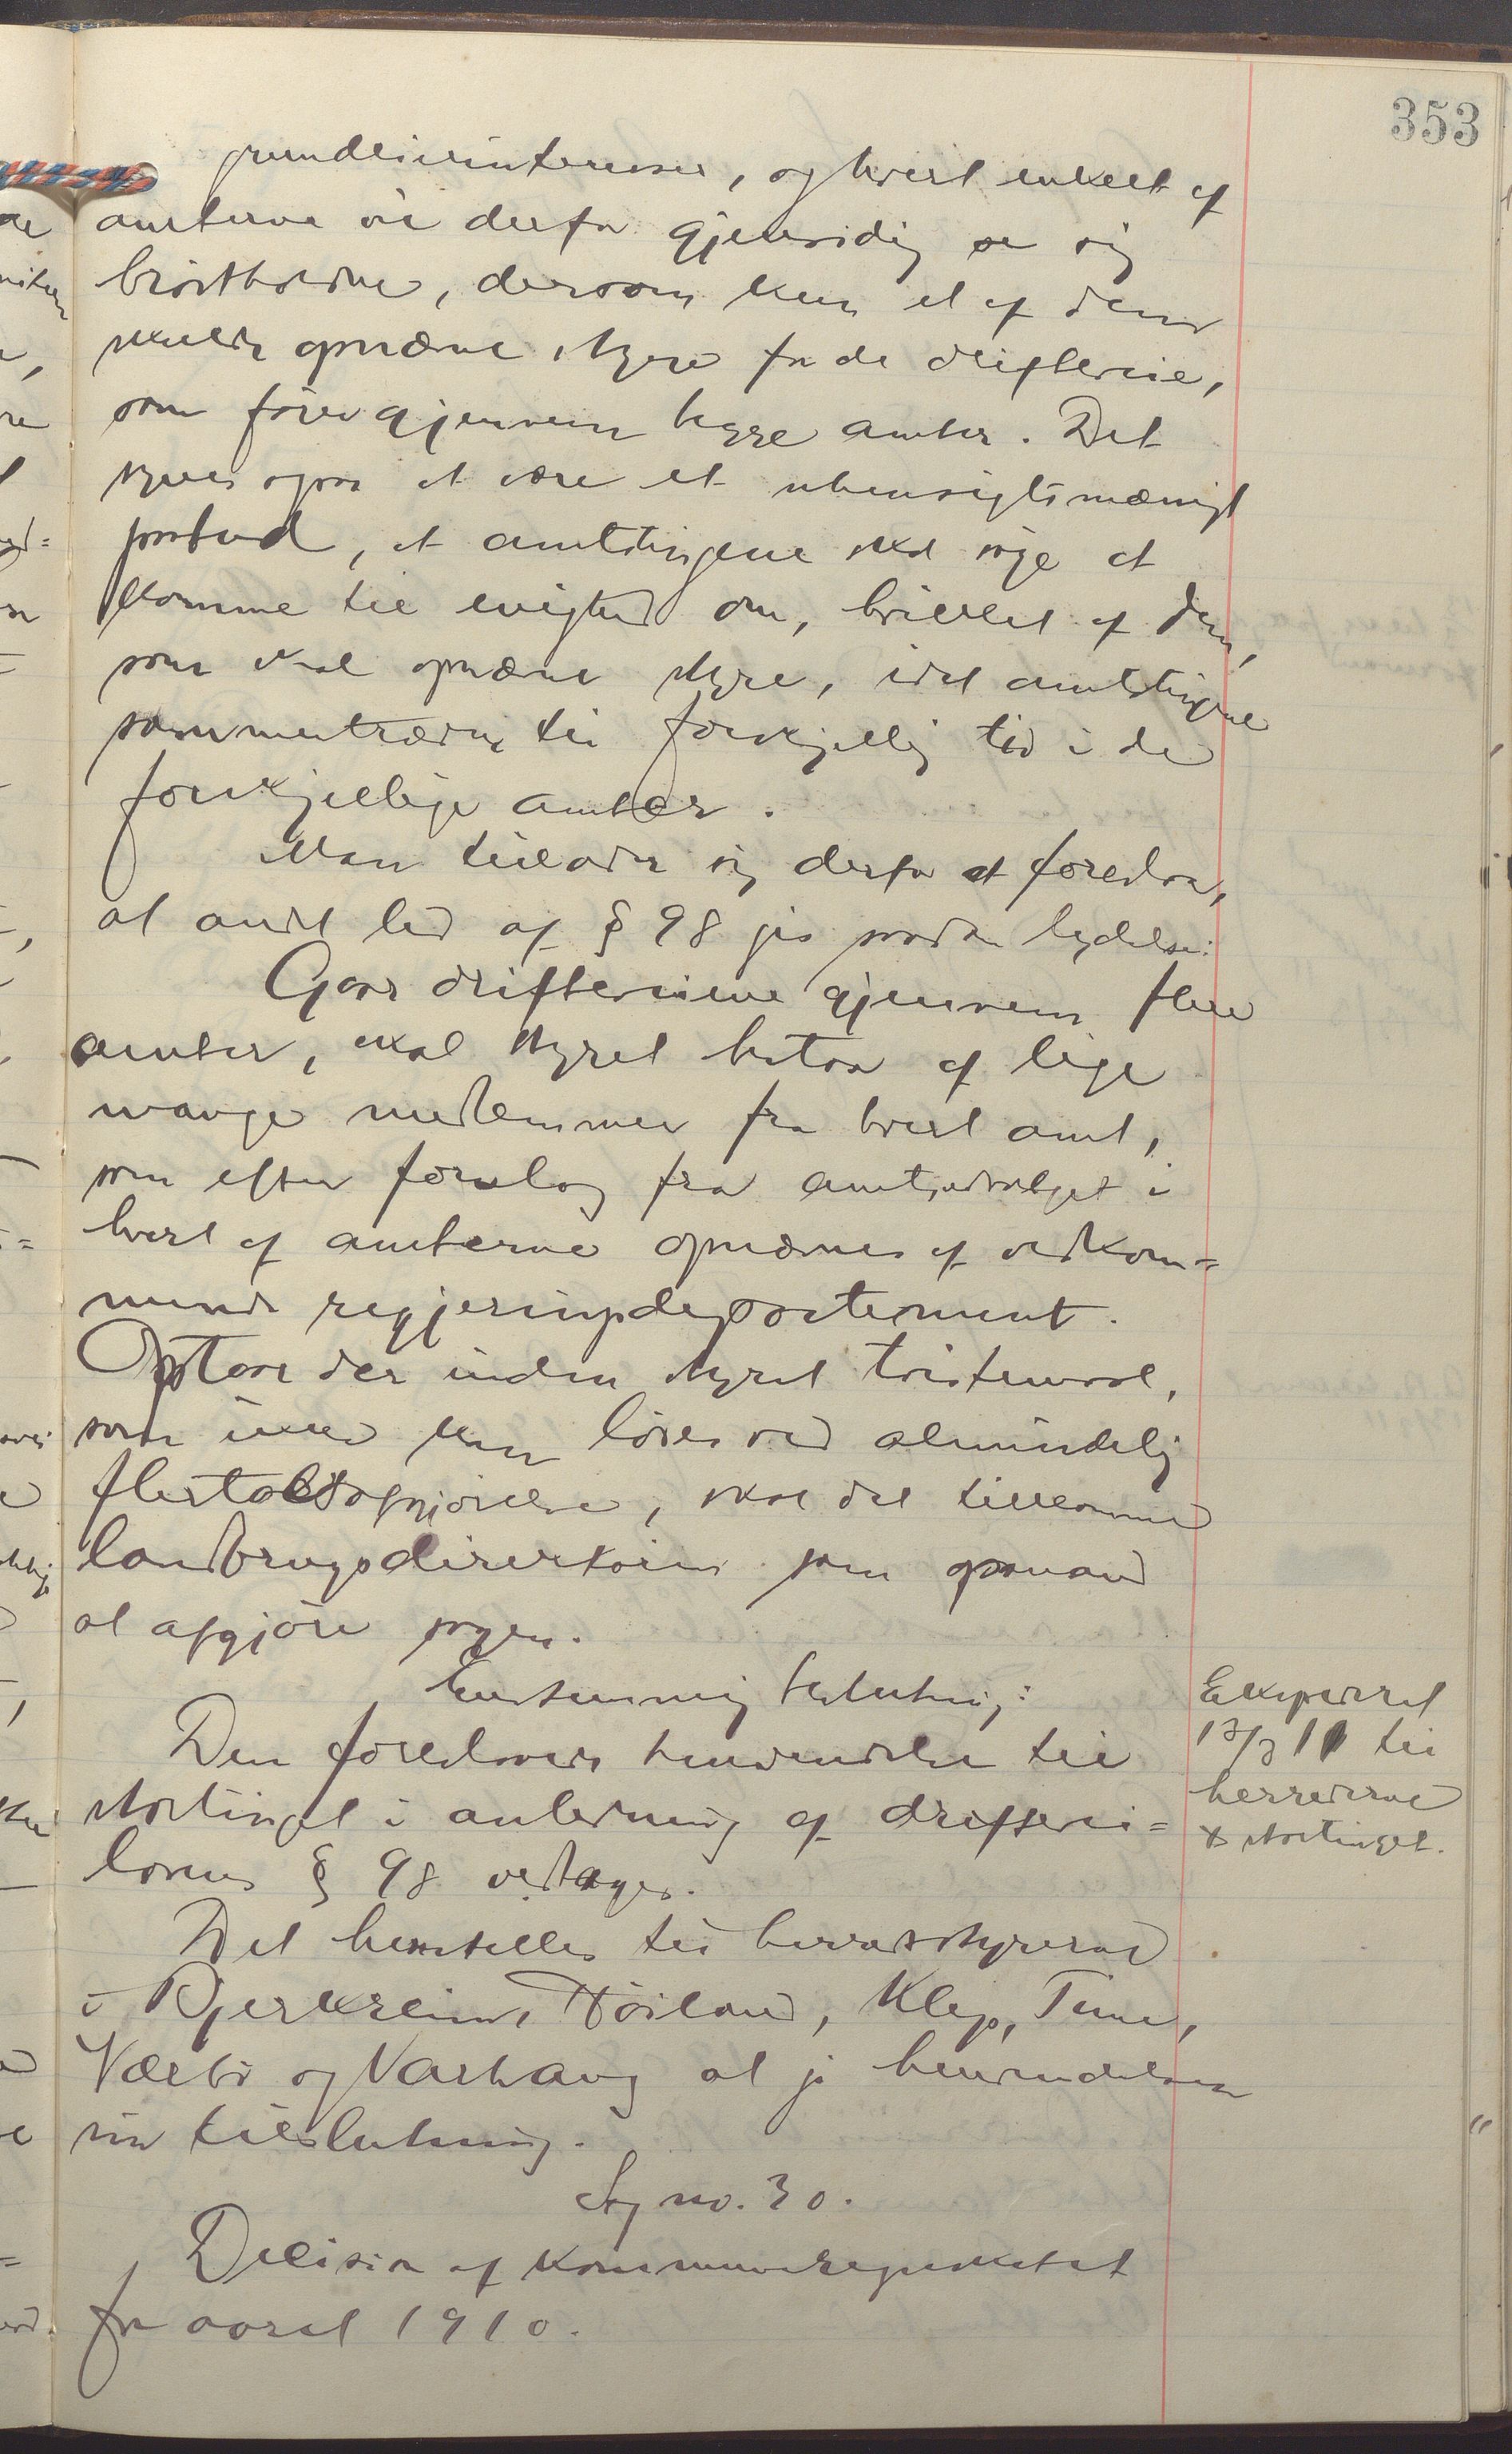 353
grundeierinteresser, og hvert enkelt af
amterne vil derfor gjensidig se sig
brøstholdne, dersom kun et af dem
skulde opnævne styre for de driftleveie,
som fører gjennem begge amter. Det
synes ogsaa at være et uhensigtsmæssigt
paabud, at amtstingene skal søge at
komme til enighed om, hvilket af dem,
som skal opnævne styre, idet amtstingene
sammentræder til forskjellig tid i de
forskjellige amter.
Man tillader sig derfor at foreslaa,
at andet led af § 98 gis saadan lydelse:
Gaar drifteveiene gjennem flere
amter, skal styret bestaa af lige
mange medlemmer fra hvert amt,
som efter forslag fra amtsudvalget i
hvert af amterne opnævnes af vedkom=
mende regjeringsdepartement.
Opstaar der inden styret tvistemaal,
som ikke kan løses ved almindelig
flertalsafgjørelse, skal det tilkomme
landbrugsdirektøren som opmand
at afgjøre sagen.
Enstemmig beslutning:
Den foreslaaede henvendelse til
stortinget i anledning af driftevei=
lovens § 98 vedtages.
Det henstilles til herredsstyrerne
i Bjerkreim, Høiland, Klep, Time,
Nærbø og Varhaug at gi henvendelsen
sin tilslutning.
Ekspedert
13/3 11 til
herrederne
& stortinget.
Sag no. 30.
Decision af kommuneregnskabet
for aaret 1910.